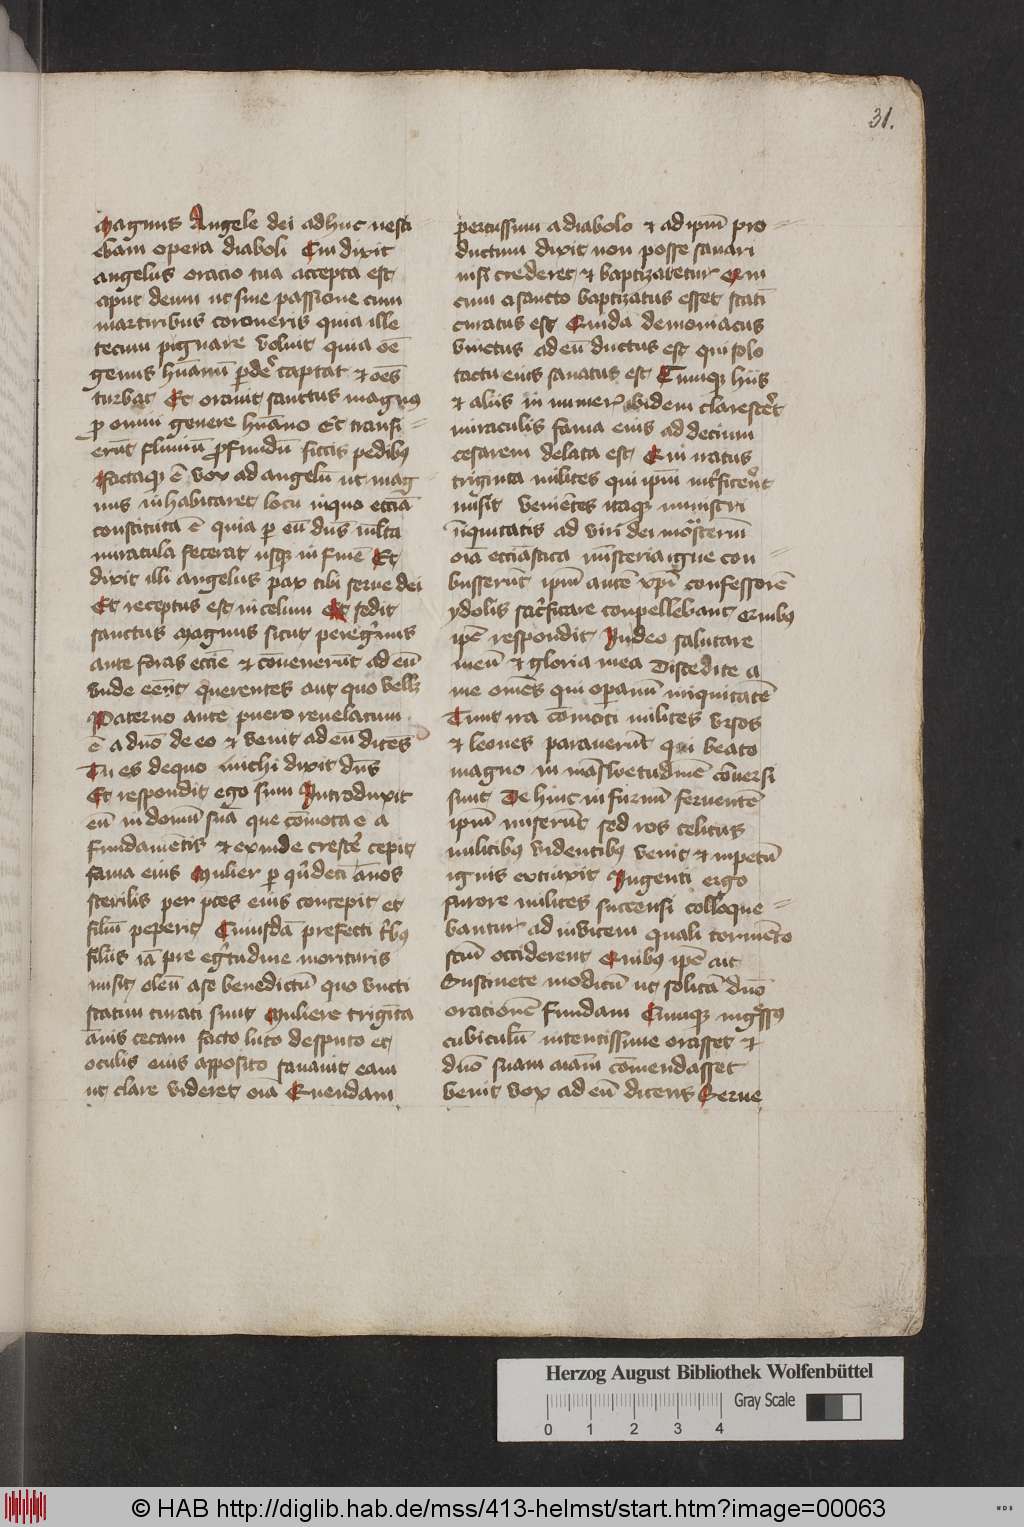 31.
magnus Angele dei adhuc nesci
ebam opera diaboli Cui dixit
angelus oracio tua accepta est
aput deum ut sine passione cum
martiribus coroneris quia ille
tecum pignare voluit quia oē
genus hūanū ꝑdē captat et oēs
turbat Et orauit sanctus magnus
ꝓ omni genere hūano Et transi
erūt fluuiū ꝓfundū siccis pedibus
factaqꝫ ē vox ad angelū ut mag
nus inhabitaret locū in quo ecciā
constituta ē quia ꝑ eū dn̄s multa
miracula fecerat usqꝫ in finē Et
dixit illi angelus pax tibi serue dei
Et receptus est in celum Et sedit
sanctus magnus sicut peregrinus
ante foras eccīe et conuenerūt ad eū
vnde querentes aut quo
Paterno ante puero reuelatum
ē a dn̄o de eo et venit ad eū dicēs
Tu es de quo michi dixit dn̄s
Et respondit ego sum Introduxit
eū in domū suā que cōmota e a
fundamētis et exinde cresce cepit
fama eius Mulier ꝑ ān̄os
sterilis per p̄ces eius concepit et
filiū peperit Cuiusdā prefecti tribus
filiis iā pre egritudine morituris
misit oleū a se benedictū quo vncti
statim curati sunt Muliere trigīta
ānis cecam facto luto desputo et
oculis eius apposito sanauit eam
ut clare videret oīa Quendam
percussum a diabolo et ad ipm̄ pro
ductum dixit non posse sanari
nisi crederet et baptizaretur Qui
cum a sancto baptizatus esset stati
curatus est Quida demoniacus
vinctus ad eū ductus est qui solo
tactu eius sanatus est Cumqꝫ hiis
et aliis in numer ibidem claresceret
miraculis fama eius ad decium
cesarem delata est Qui iratus
triginta milites qui ipm̄ int̄ficerent
misit venientes itaqꝫ ministri
iniquitatis ad viri dei mosteriū
oīa ecciastica misteria igne con
busserūt ipm̄ autē xp̄i confessorē
ydolis sacrificare conpellebant Quibus
ipē respondit In deo salutare
meū et gloria mea Discedite a
me omēs qui operamī iniquitatē
Tunc ira cōmoti milites vrsos
et leones parauerūt qui beato
magno in māsuetudinē cōuersi
sunt De hinc in furnū feruentē
ipm̄ miserūt sed ros celitus
militibus videntibus venit et inpetū
ignis extinxit Ingenti ergo
furore milites succensi colloque
bantur ad inuicem quali tormēto
sc̄m occiderent Quibus ipē ait
Sustinete modicū ut solitā dn̄o
orationē fundam Cumqꝫ ingressus
cubiculū intentissime orasset et
dn̄o suam aīam cōmendasset
venit vox ad eū dicens Serue
Herzog August Bibliothek Wolfenbüttel
Gray Scale
0 1 2 3 4
© HAB http://diglib.hab.de/mss/413-helmst/start.htm?image=00063